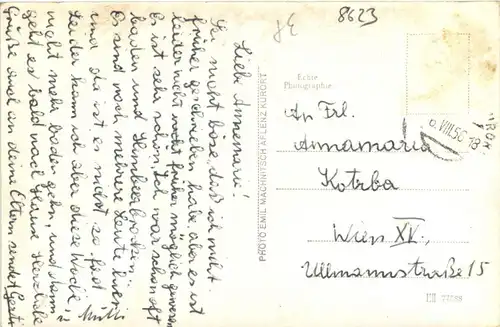 8623
Liebe Annemarie!
Sei nicht böse, daß ich nicht
früher geschrieben habe, aber es ist
leider nicht früher möglich gewesen
Es ist sehr schön. Ich war schon oft
baden und Himbeerbrocken
Es sind noch mehrere Leute hier
und da ist es nicht so fad
Leider kann ich aber diese Woche
nicht mehr baden gehn, und dann
geht es bald nach Hause. Herzliche
Grüße auch an deine Eltern sendet Gerti
Mutti
PHOTO EMIL MACHNITSCH AFLENZ KURORT
Echte
Photographie
An Frl.
Annamaria
Kotzba
Wien XV.,
Ullmannstraße 15